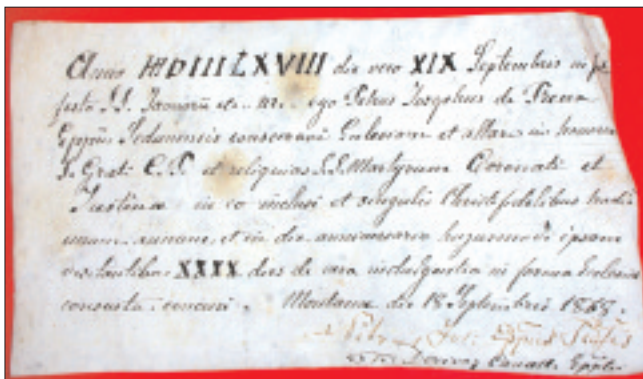 Anno MDIIILXVIII die vero XIX Septembris in
festo S.S. Januarii et ego Petrus Josephus de Preux
Eppus Sedunensis consecravi Ecclesiam et altare in honorem
S. Grati C.P. et reliquias S.S. Martyrum Coronati et
Justinae in eo inclusi et singulis Christifidelibus hodie
unum annum et in die anniversario hujusmodi ipsam
visitantibus XXXX dies de vera indulgentia in forma Ecclesiae
consueta concessi. Montana die 18 Septembris 1868.
Petr. Jos. Eppus